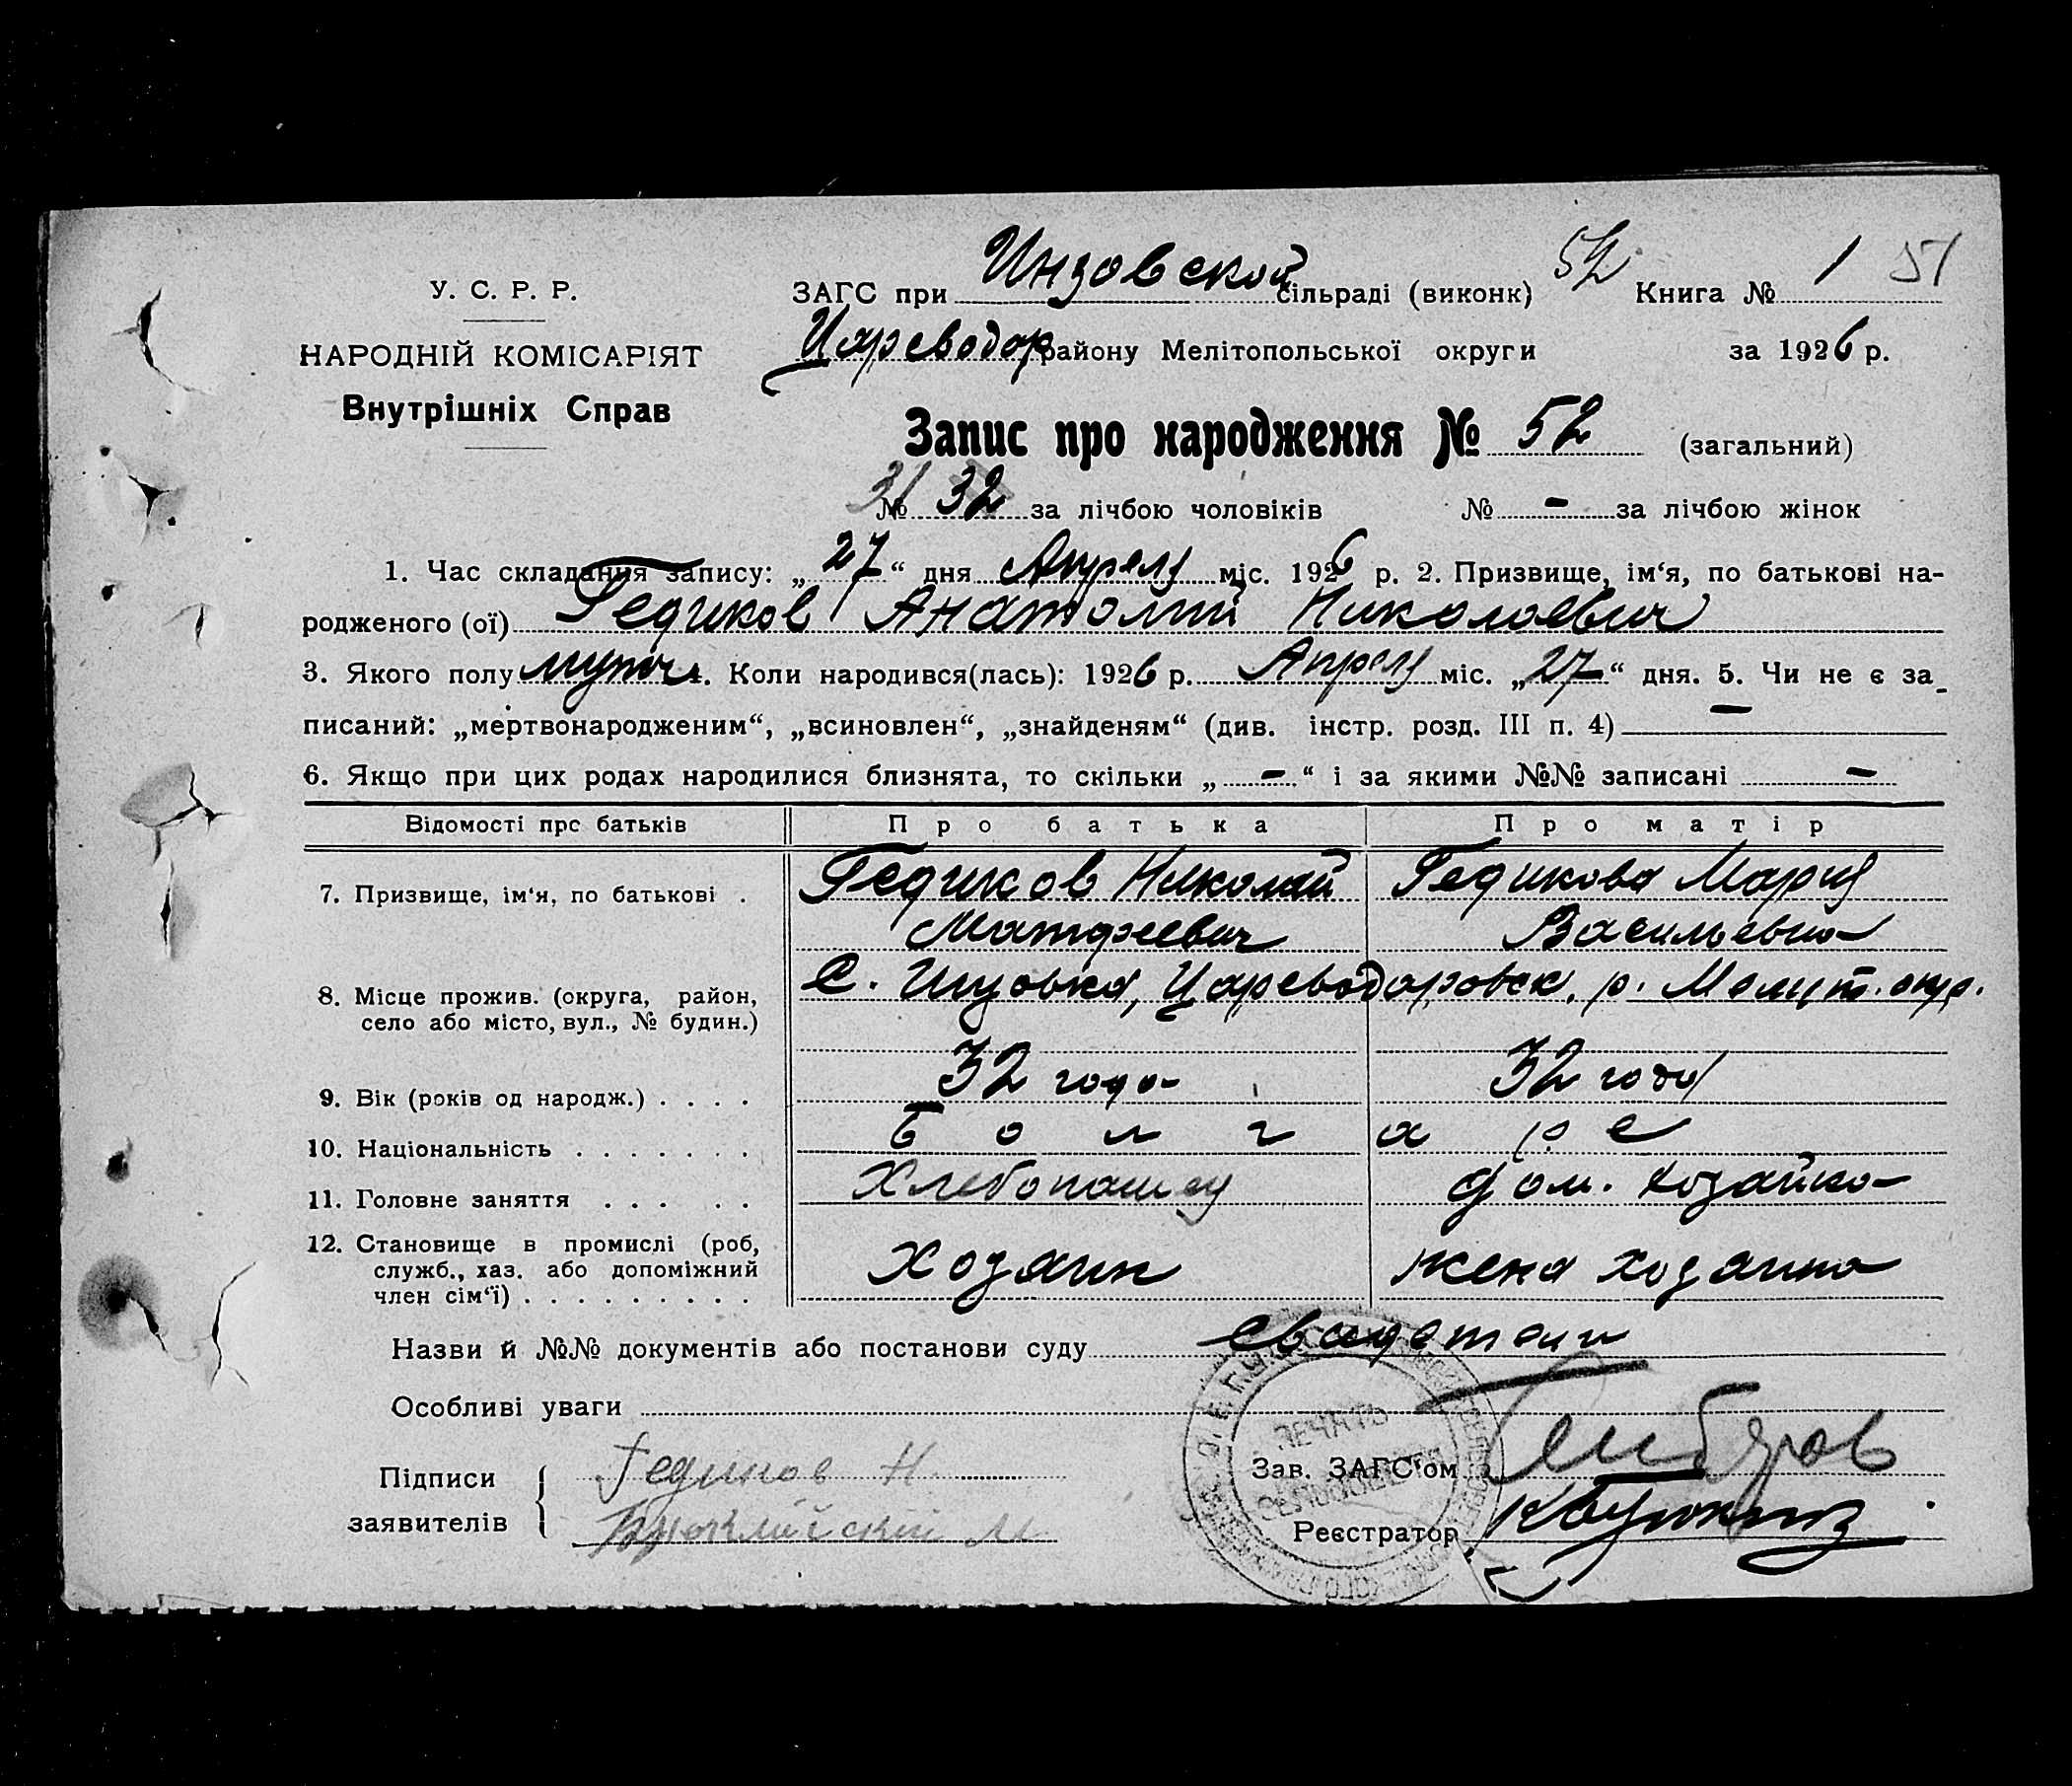 У. С. Р. Р.
НАРОДНІЙ КОМІСАРІЯТ
Внутрішніх Справ
ЗАГС при Инзовской сільраді (виконк) 52 Книга № 1 51
Цареводар району Мелітопольської округи за 1926 р.
Запис про народження № 52 (загальний)
31 № 32 за лічбою чоловіків № - за лічбою жінок
1. Час складання запису: „27“ дня Апреля міс. 1926 р. 2. Призвище, ім‘я, по батькові на-
родженого (ої) Гедиков Анатолий Николаевич
3. Якого полу мужч 4. Коли народився(лась): 1926 р. Апреля міс. „27“ дня. 5. Чи не є за-
писаний: „мертвонародженим“, „всиновлен“, „знайденям“ (див. інстр. розд. III п. 4) —
6. Якщо при цих родах народилися близнята, то скільки „-“ і за якими №№ записані -
Відомості про батьків Про батька Про матір
7. Призвище, ім‘я, по батькові . Гедиков Николай Гедикова Мария
Матфеевич Васильевна
8. Місце прожив. (округа, район, С. Инзовка, Цареводаровск. р. Мелит. окр.
село або місто, вул., № будин.)
9. Вік (років од народж.) . . . . 32 года 32 года
10. Національність . . . . . . . Болгаре
11. Головне заняття . . . . . Хлебопашец дом. хозайка
12. Становище в промислі (роб,
служб., хаз. або допоміжний Хозяин жена хозаина
член сім‘ї) . . . . . . . . .
Назви й №№ документів або постанови суду свидетели
Особливі уваги
Підписи Гедиков Н. Зав. ЗАГС‘ом
заявителів М Реєстратор
ПЕЧАТЬ